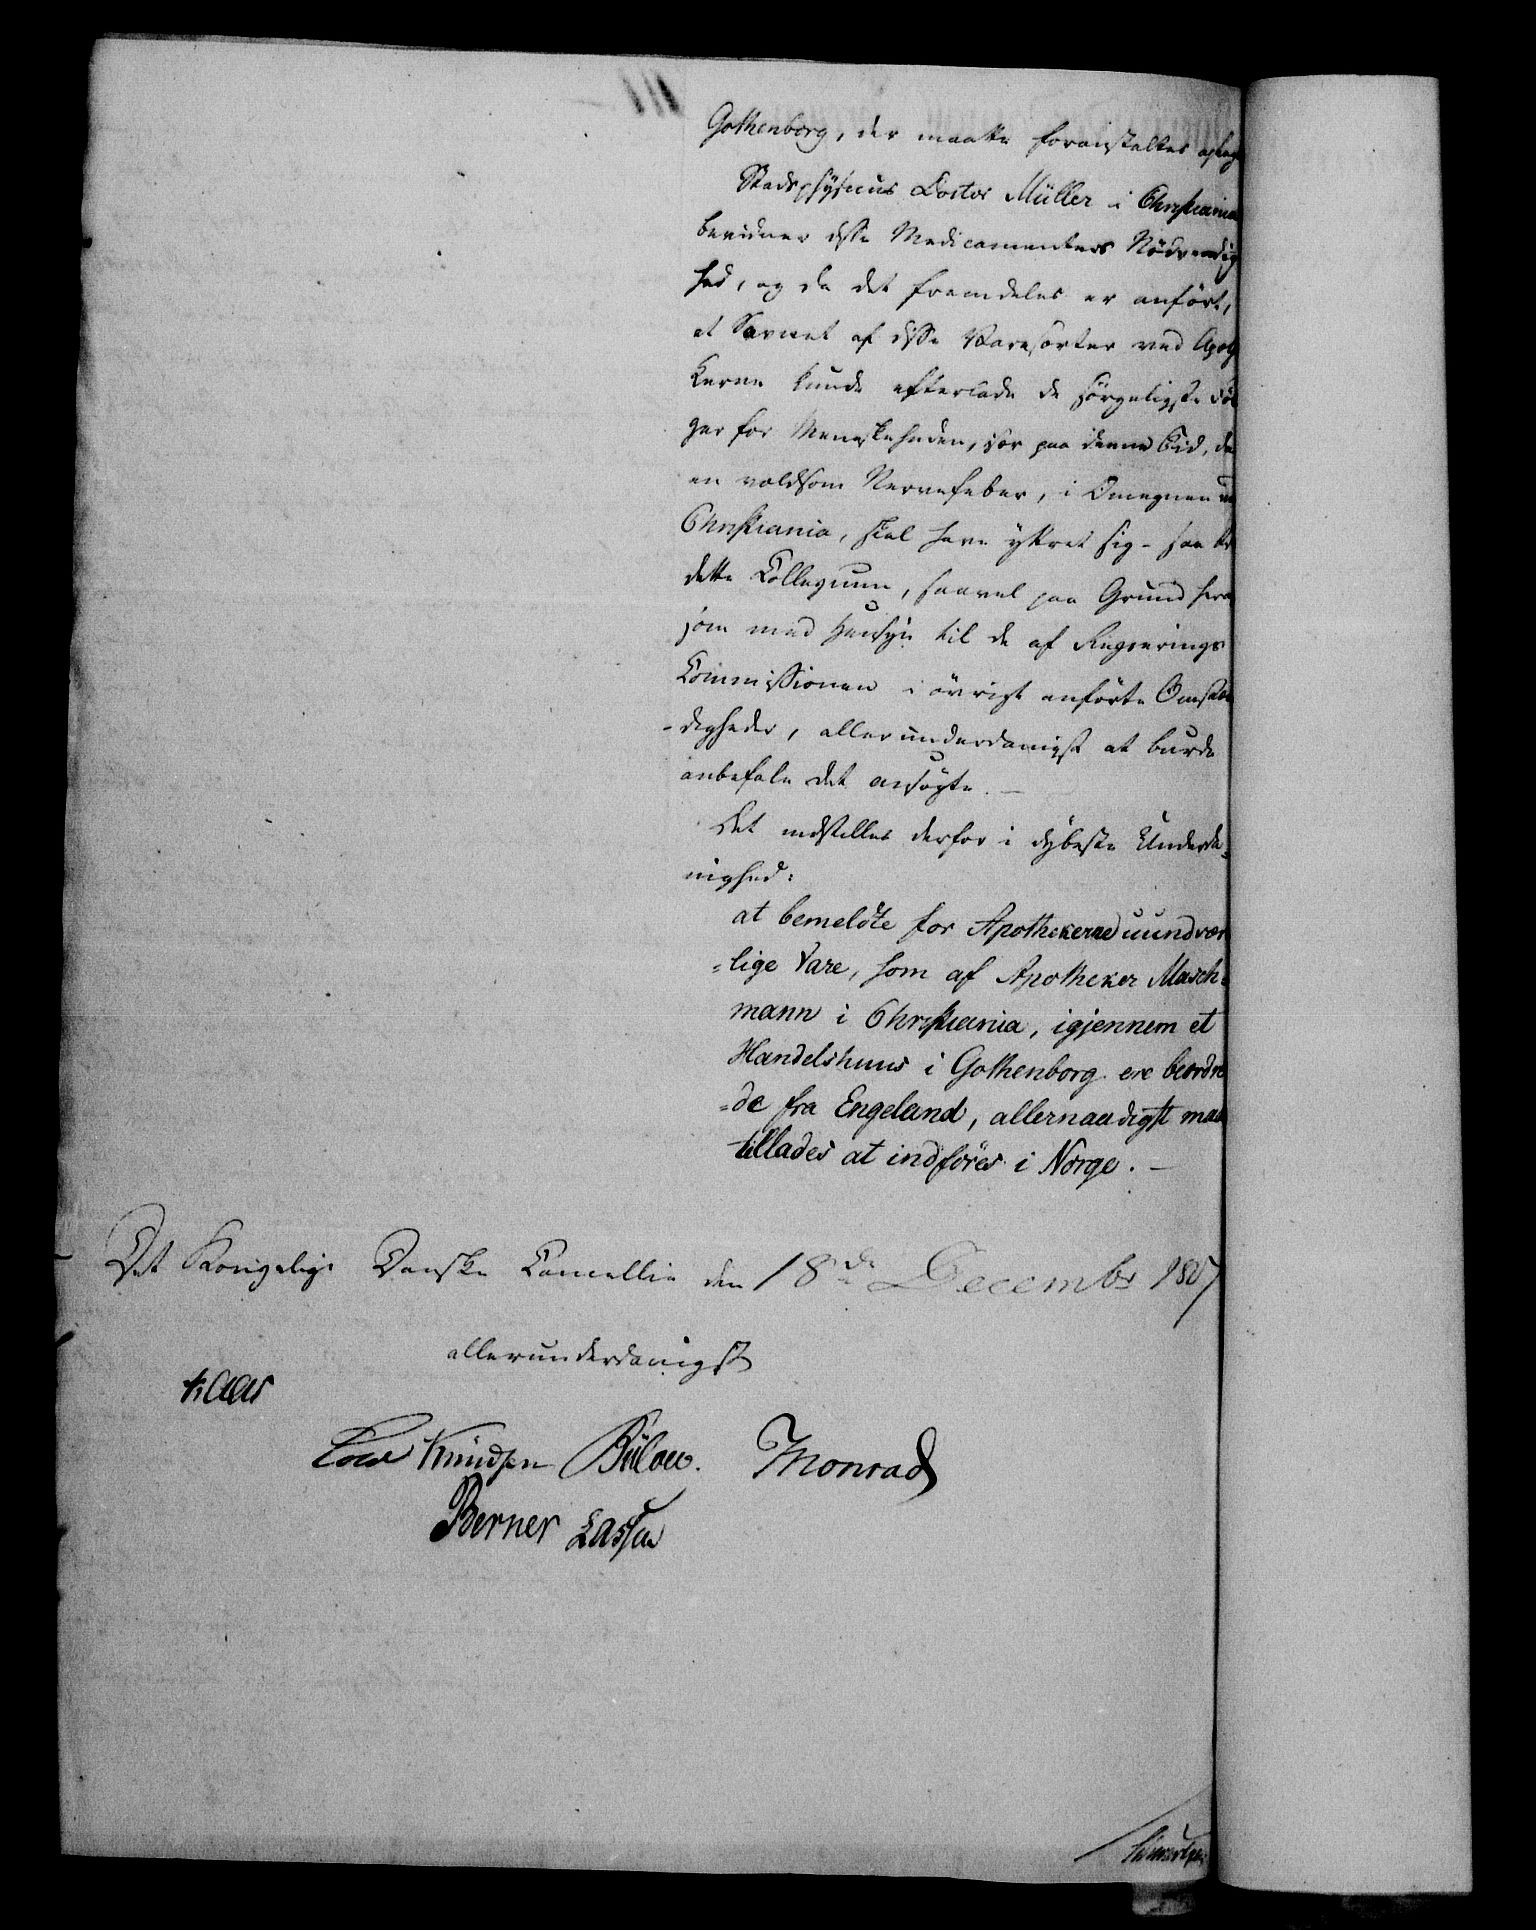 Gothenborg, der maatte foranstaltes
Stadsphysicus Doctor Müller i Christiania
bevidner disse Medicamenters Nödvendig
hed, og da det fremdeles er anfört,
at Savnet af disse Varesorter ved Apoth
kerne kunde efterlade de sörgeligste Föl
ger for Menneskeheden, især paa denne Tid, da
en voldsom Nervefeber, i Omegnen
Christiania, skal have yttret sig - saa
dette Collegium, saavel paa Grund
som med Hensyn til de af Regierings
Commissionen i övrigt anförte Omstæn
-digheder, allerunderdanigst at burde
anbefale det ansögte. -
Det indstilles derfor i dybeste Underda-
nighed:
at bemeldte for Apothekerne uundvær
=lige Vare, som af Apotheker Masch-
mann i Christiania, igjennem et
Handelshuus i Gothenborg ere beordre
=de fra Engeland, allernaadigst maae
tillades at indföres i Norge. -
Det Kongelige Danske Cancellie den 18de Decembr 1807
allerunderdanigst
Kaas
Knudsen Bülow. Monrad
Berner Lassen